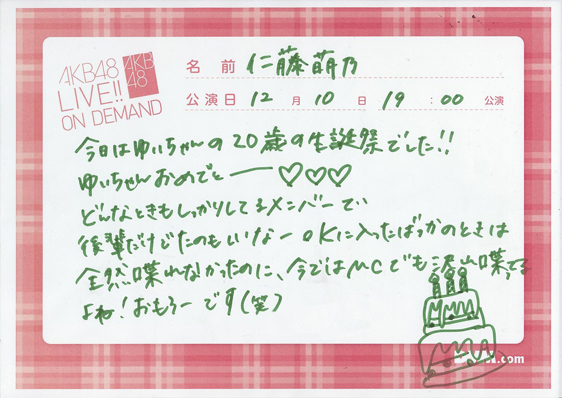 AKB48
LIVE!!
ON DEMAND
AKB
48
名前 仁藤萌乃
公演日 12 月 10 日 19 : 00 公演
今日はゆいちゃんの20歳の生誕祭でした!!
ゆいちゃんおめでとー♡♡♡
どんなときもしっかりしてるメンバーで、
後輩だけどたのもしいなー。Kに入ったばっかのときは
全然喋れなかったのに、今ではMCでも沢山喋ってる
よね!おもろーです(笑)
.com